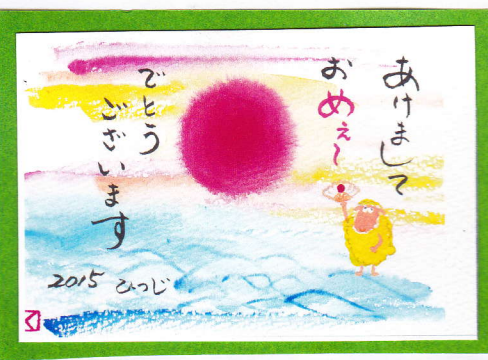 あけまして
おめぇ〜
でとう
ございます
2015 ひつじ